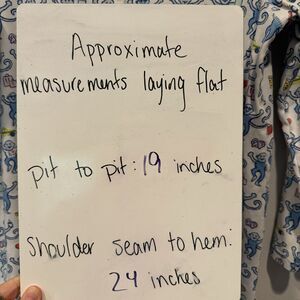 Approximate
measurements laying flat
pit to pit: 19 inches
Shoulder seam to hem:
24 inches